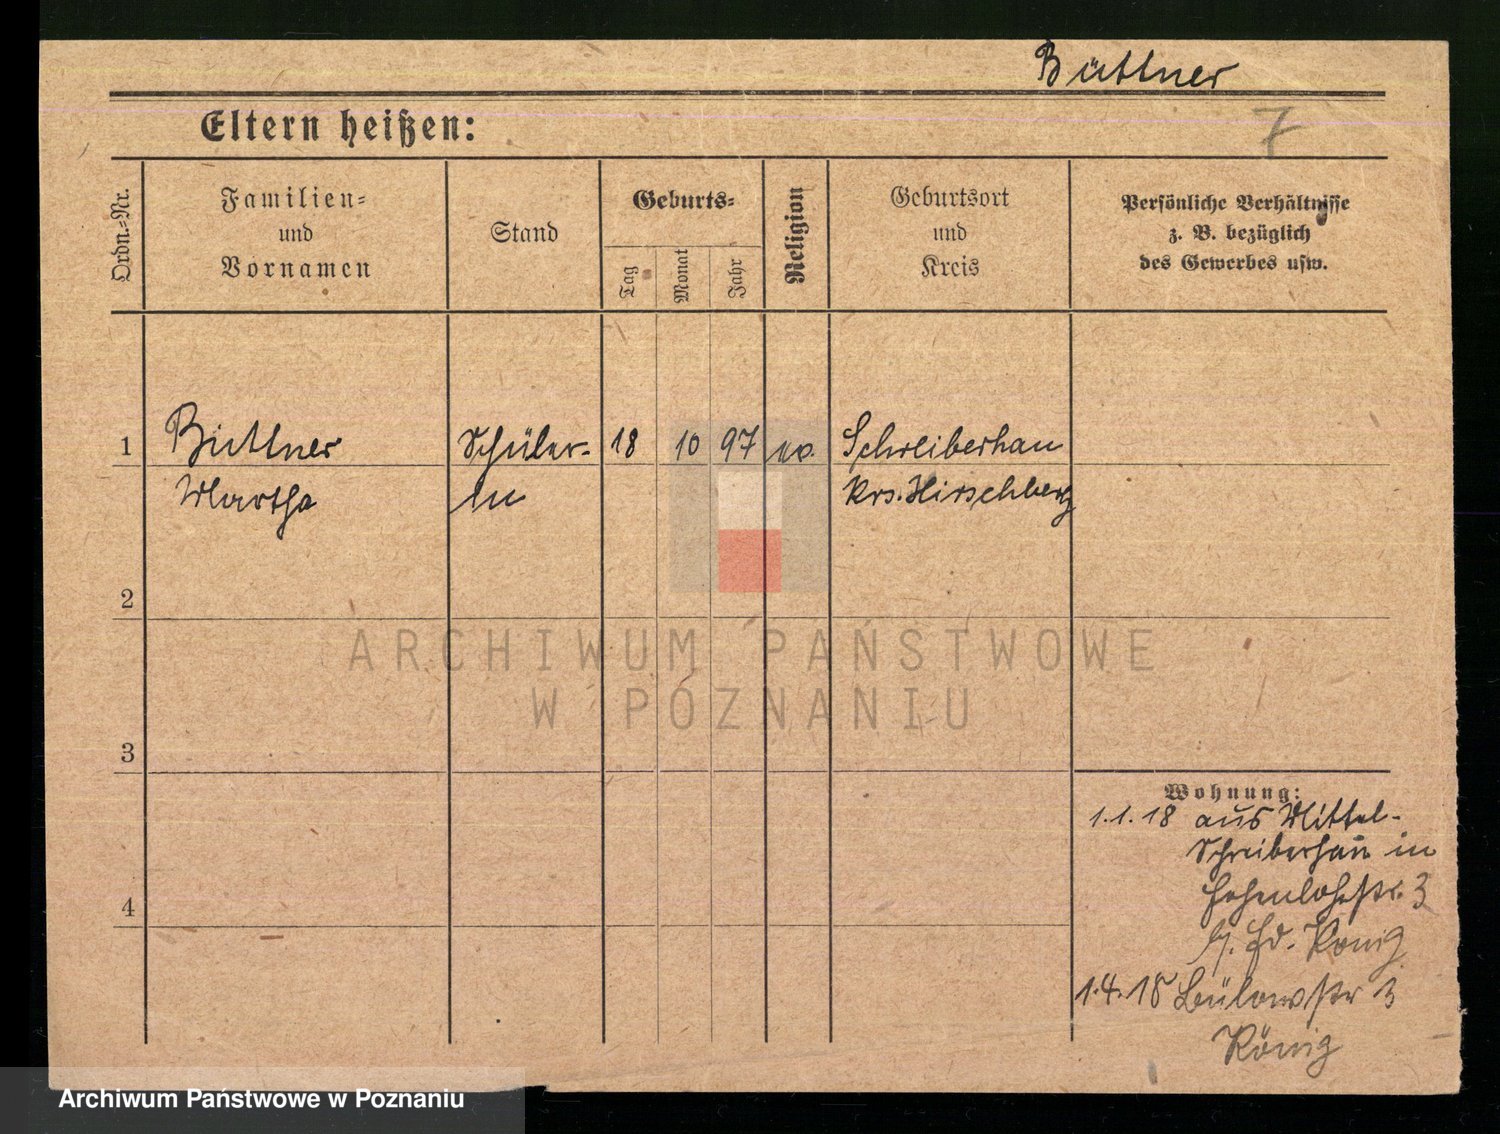 Büttner
7
Eltern heißen:
Ordn.=Nr.
Familien=
und
Vornamen
Stand
Geburts=
Tag
Monat
Jahr
Religion
Geburtsort
und
Kreis
Persönliche Verhältnisse
z. B. bezüglich
des Gewerbes usw.
1 Büttner Schüler- 18 10 97 ev. Schreiberhau
Martha in Krs. Hirschberg
2
3
4
Wohnung:
1.1.18 aus Mittel-
Schreiberhau in
Hohenlohestr. 3
König
1.4.18 Bülowstr 3
König
ARCHIWUM PAŃSTWOWE
W POZNANIU
Archiwum Państwowe w Poznaniu